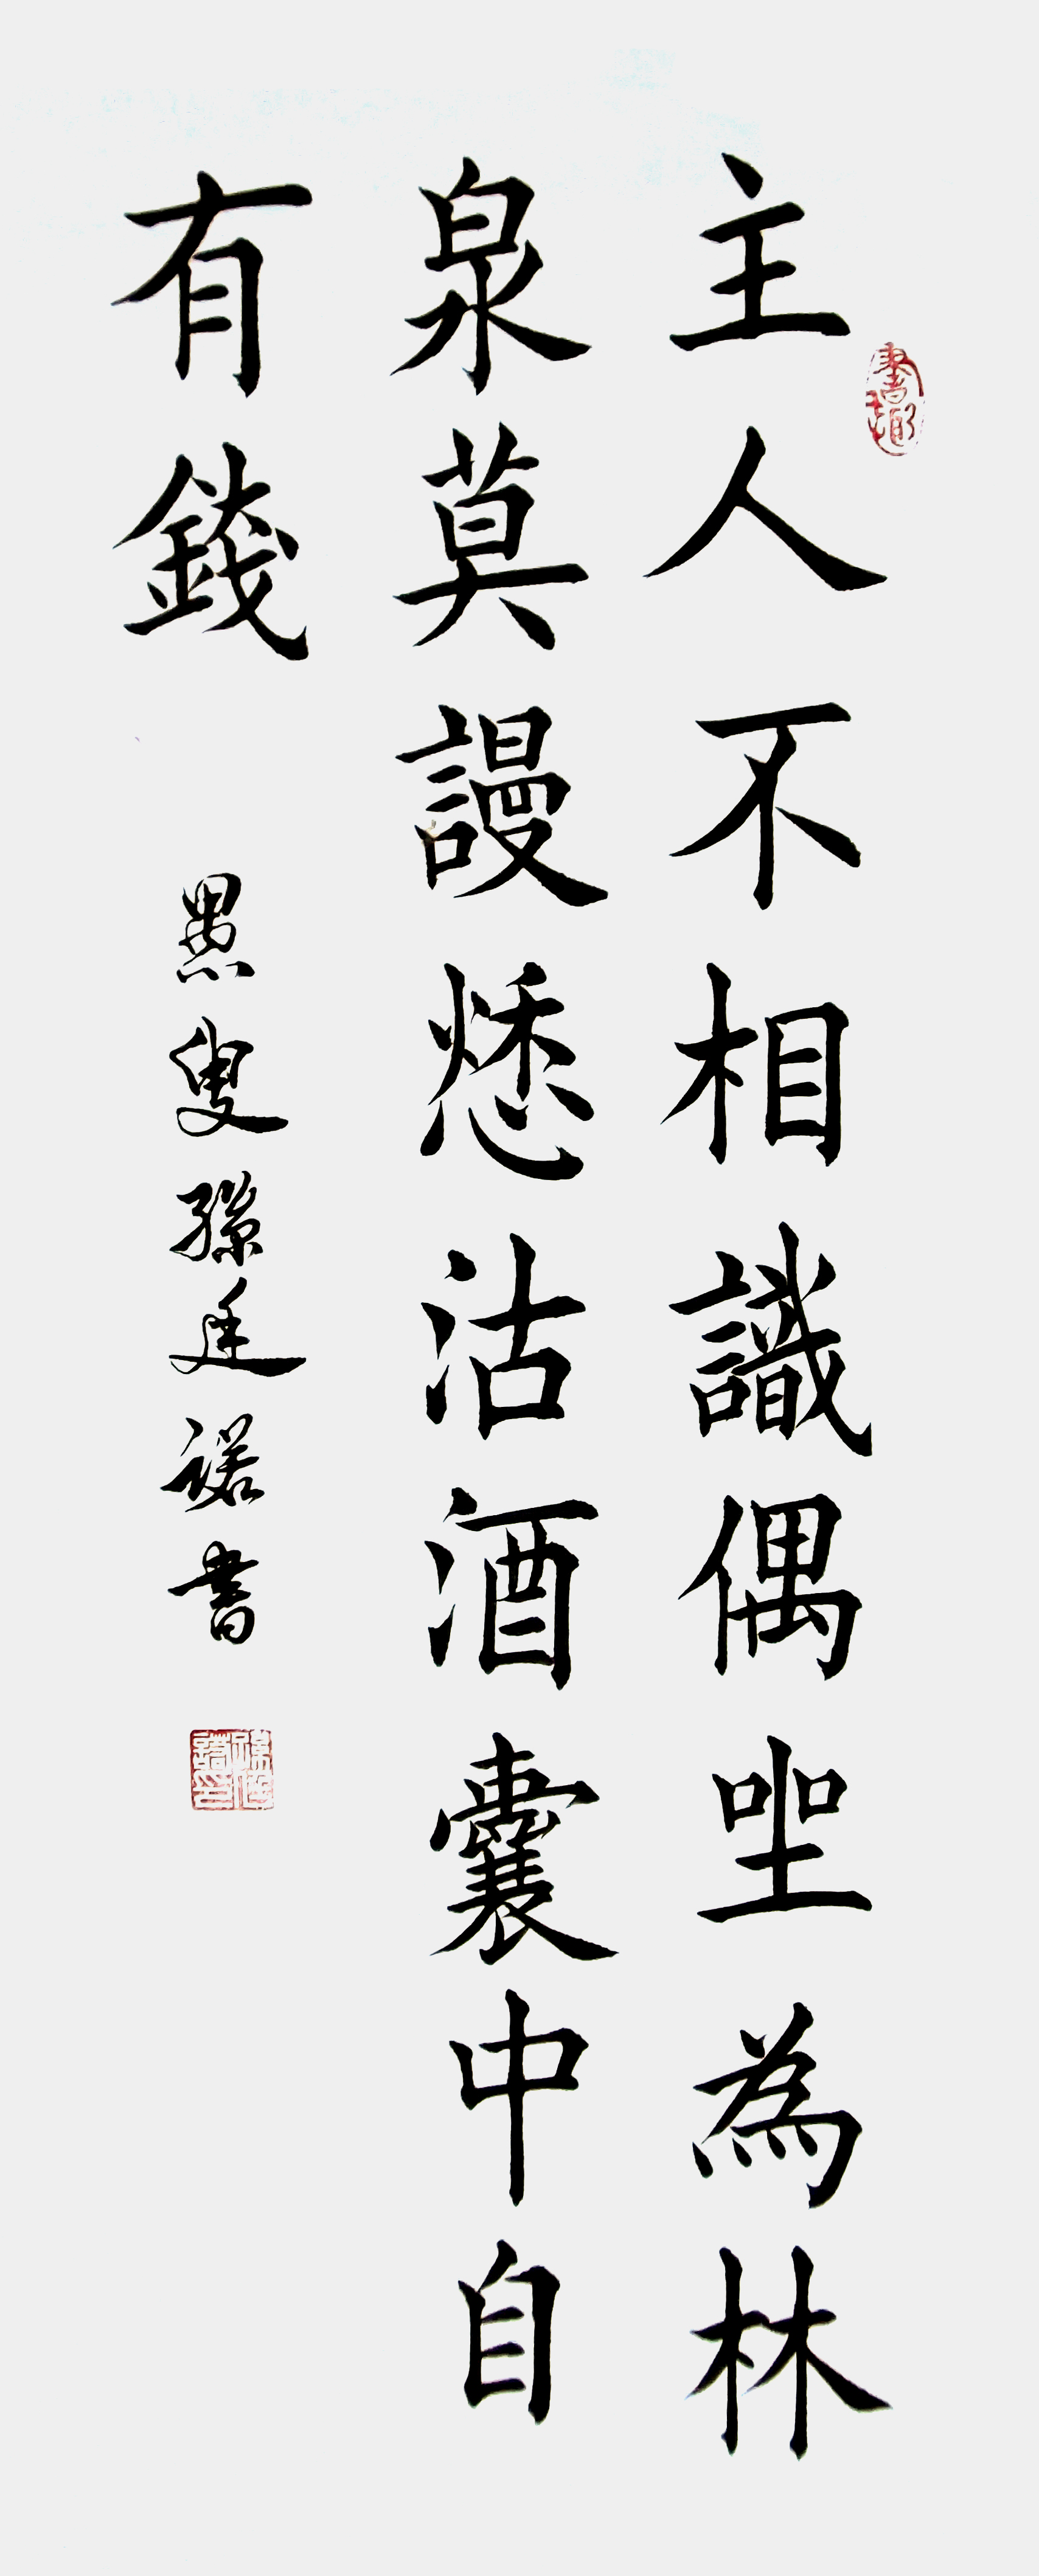 主人不相識偶坐為林
泉莫謾愁沽酒囊中自
有錢
愚叟孫廷諾書